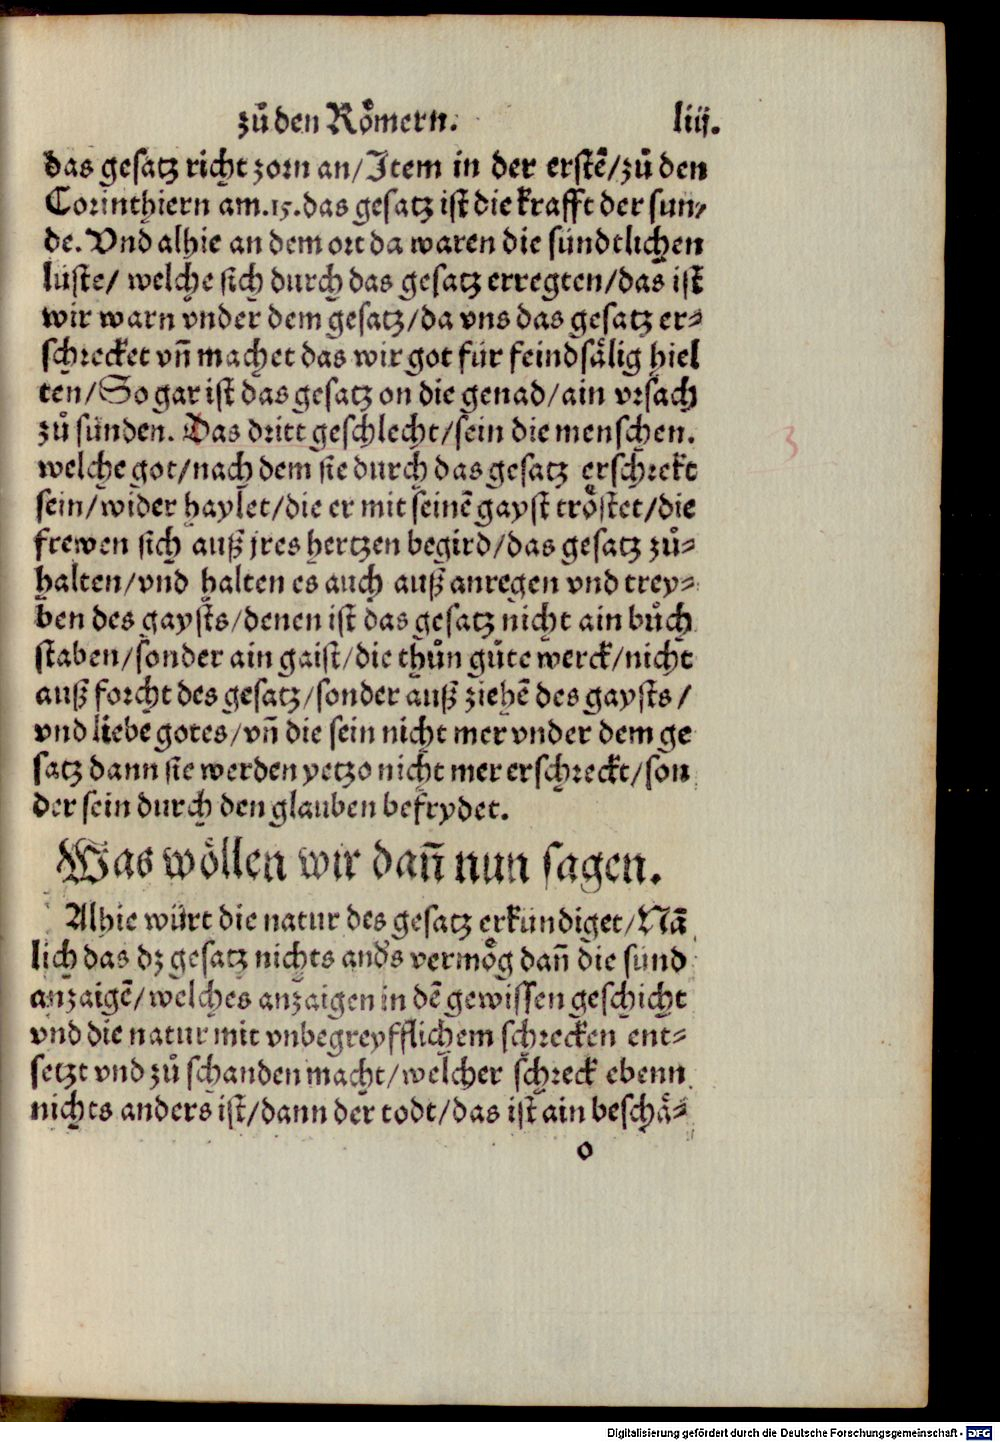 zů den Rômern. liij.
das gesatz richt zorn an/Item in der erstẽ/zů den
Corinthiern am.15.das gesatz ist die krafft der sun-
de. Vnd alhie an dem ort da waren die sündtlichen
lüste/ welche sich durch das gesatz erregten/das ist
wir warn vnder dem gesatz/da vns das gesatz er-
schrecket vñ machet das wir got für feindsålig hiel
ten/So gar ist das gesatz on die genad/ain vrsach
zů sünden. Das dritt geschlecht/sein die menschen.
welche got/nach dem sie durch das gesatz erschrekt
sein/wider haylet/die er mit seinẽ gayst trôstet/die
frewen sich auß jres hertzen begird/das gesatz zů-
halten/vnd halten es auch auß anregen vnd trey-
ben des gaysts/denen ist das gesatz nicht ain bůch
staben/sonder ain gaist/die thůn gůte werck/nicht
auß forcht des gesatz/sonder auß ziehẽ des gaysts/
vnd liebe gotes/vñ die sein nicht mer vnder dem ge
satz dann sie werden yetzo nicht mer erschreckt/son
der sein durch den glauben befrydet.
Was wôllen wir dañ nun sagen.
Alhie würt die natur des gesatz erkündiget/Nã
lich das dz gesatz nichts anders vermôg dañ die sünd
anzaigẽ/welches anzaigen in dẽ gewissen geschicht
vnd die natur mit vnbegreyfflichem schrecken ent-
setzt vnd zů schanden macht/welcher schreck ebenn
nichts anders ist/dann der todt/das ist ain beschå-
o
3
Digitalisierung gefördert durch die Deutsche Forschungsgemeinschaft - DFG